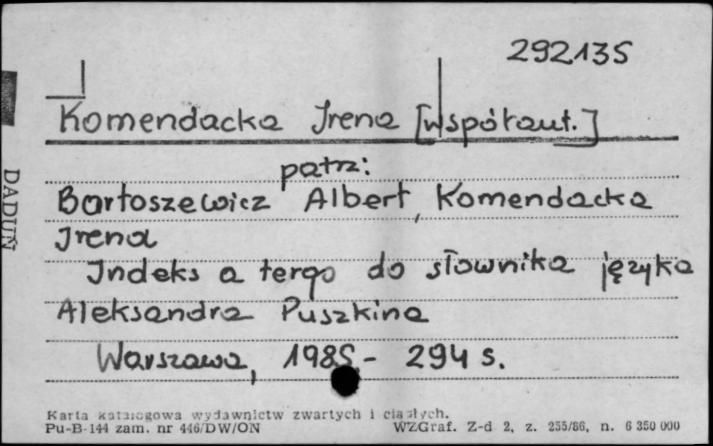 292135
Komendacka Irena [współaut.]
patrz:
Bartoszewicz Albert, Komendacka
Irena
Indeks a tergo do słownika języka
Aleksandra Puszkina
Warszawa, 1985.- 294 s.
Karta katalogowa wydawnictw zwartych i ciągłych.
Pu-B-144 zam. nr 446/DW/ON
WZGraf. Z-d 2, z. 255/86, n. 6 350 000
DADUŃ